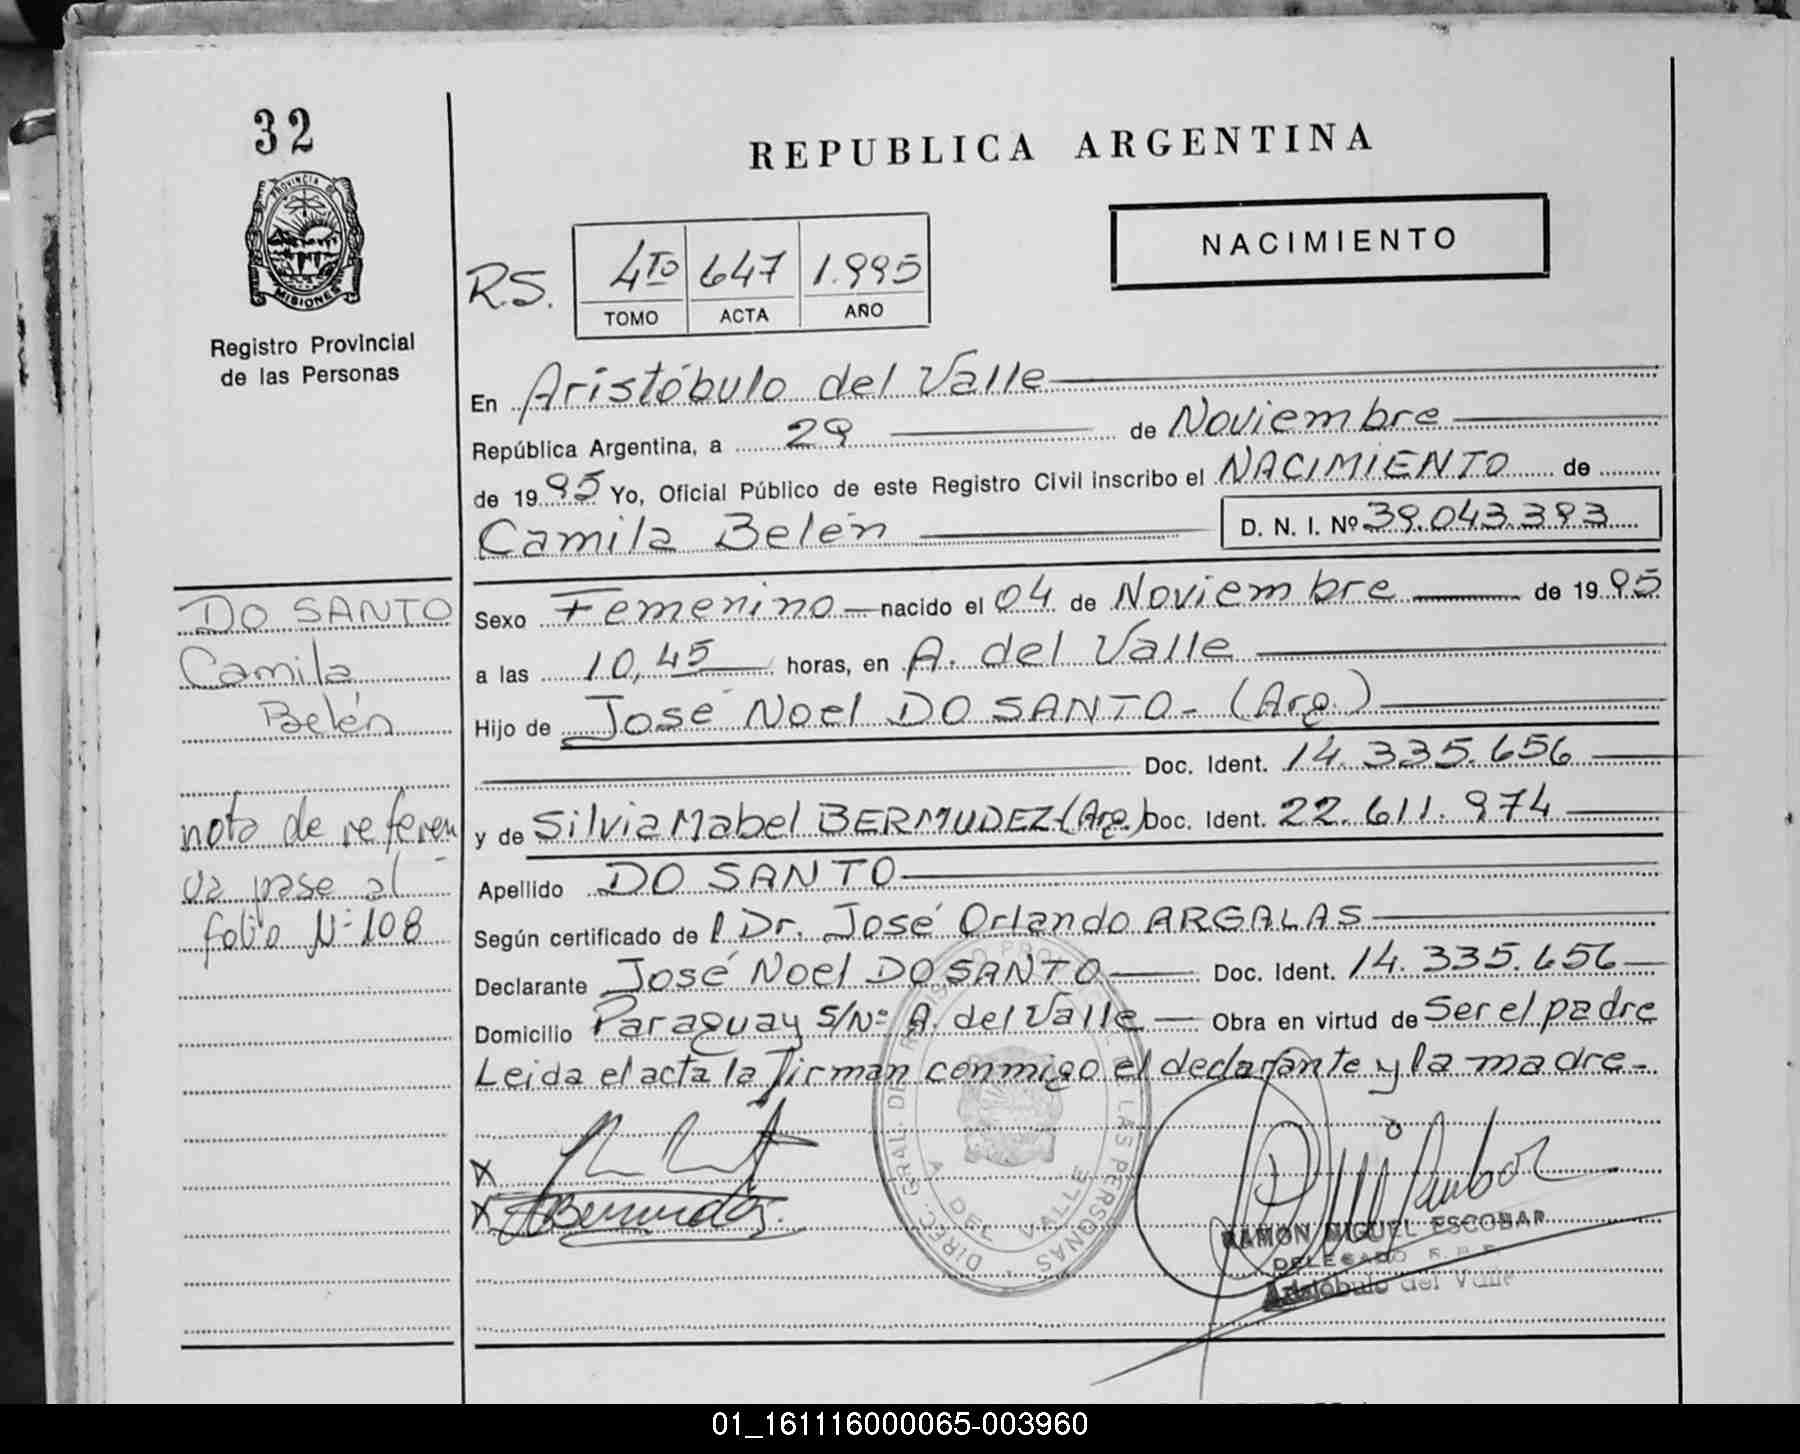 32
PROVINCIA DE
MISIONES
Registro Provincial
de las Personas
REPUBLICA ARGENTINA
NACIMIENTO
R.S.
4to 647 1.995
TOMO ACTA AÑO
En Aristóbulo del Valle
República Argentina, a 29 de Noviembre
de 1995 Yo, Oficial Público de este Registro Civil inscribo el NACIMIENTO de
Camila Belén D. N. I. Nº 39.043.393
DO SANTO
Camila
Belén
nota de referen
va pase al
folio Nº 108
Sexo Femenino nacido el 04 de Noviembre de 1995
a las 10,45 horas, en A. del Valle
Hijo de José Noel DO SANTO - (Arg.)
Doc. Ident. 14.335.656
y de Silvia Mabel BERMUDEZ (Arg.) Doc. Ident. 22.611.974
Apellido DO SANTO
Según certificado de l Dr. José Orlando ARGALAS
Declarante José Noel DO SANTO Doc. Ident. 14.335.656
Domicilio Paraguay S/Nº A. del Valle Obra en virtud de Ser el padre
Leida el acta la firman conmigo el declarante y la madre.
X
X Bermudez
DIREC. GRAL. DE REGISTRO PROV. DE LAS PERSONAS
A DEL VALLE
RAMON MIGUEL ESCOBAR
DELEGADO R.P.P.
Aristóbulo del Valle
01_161116000065-003960